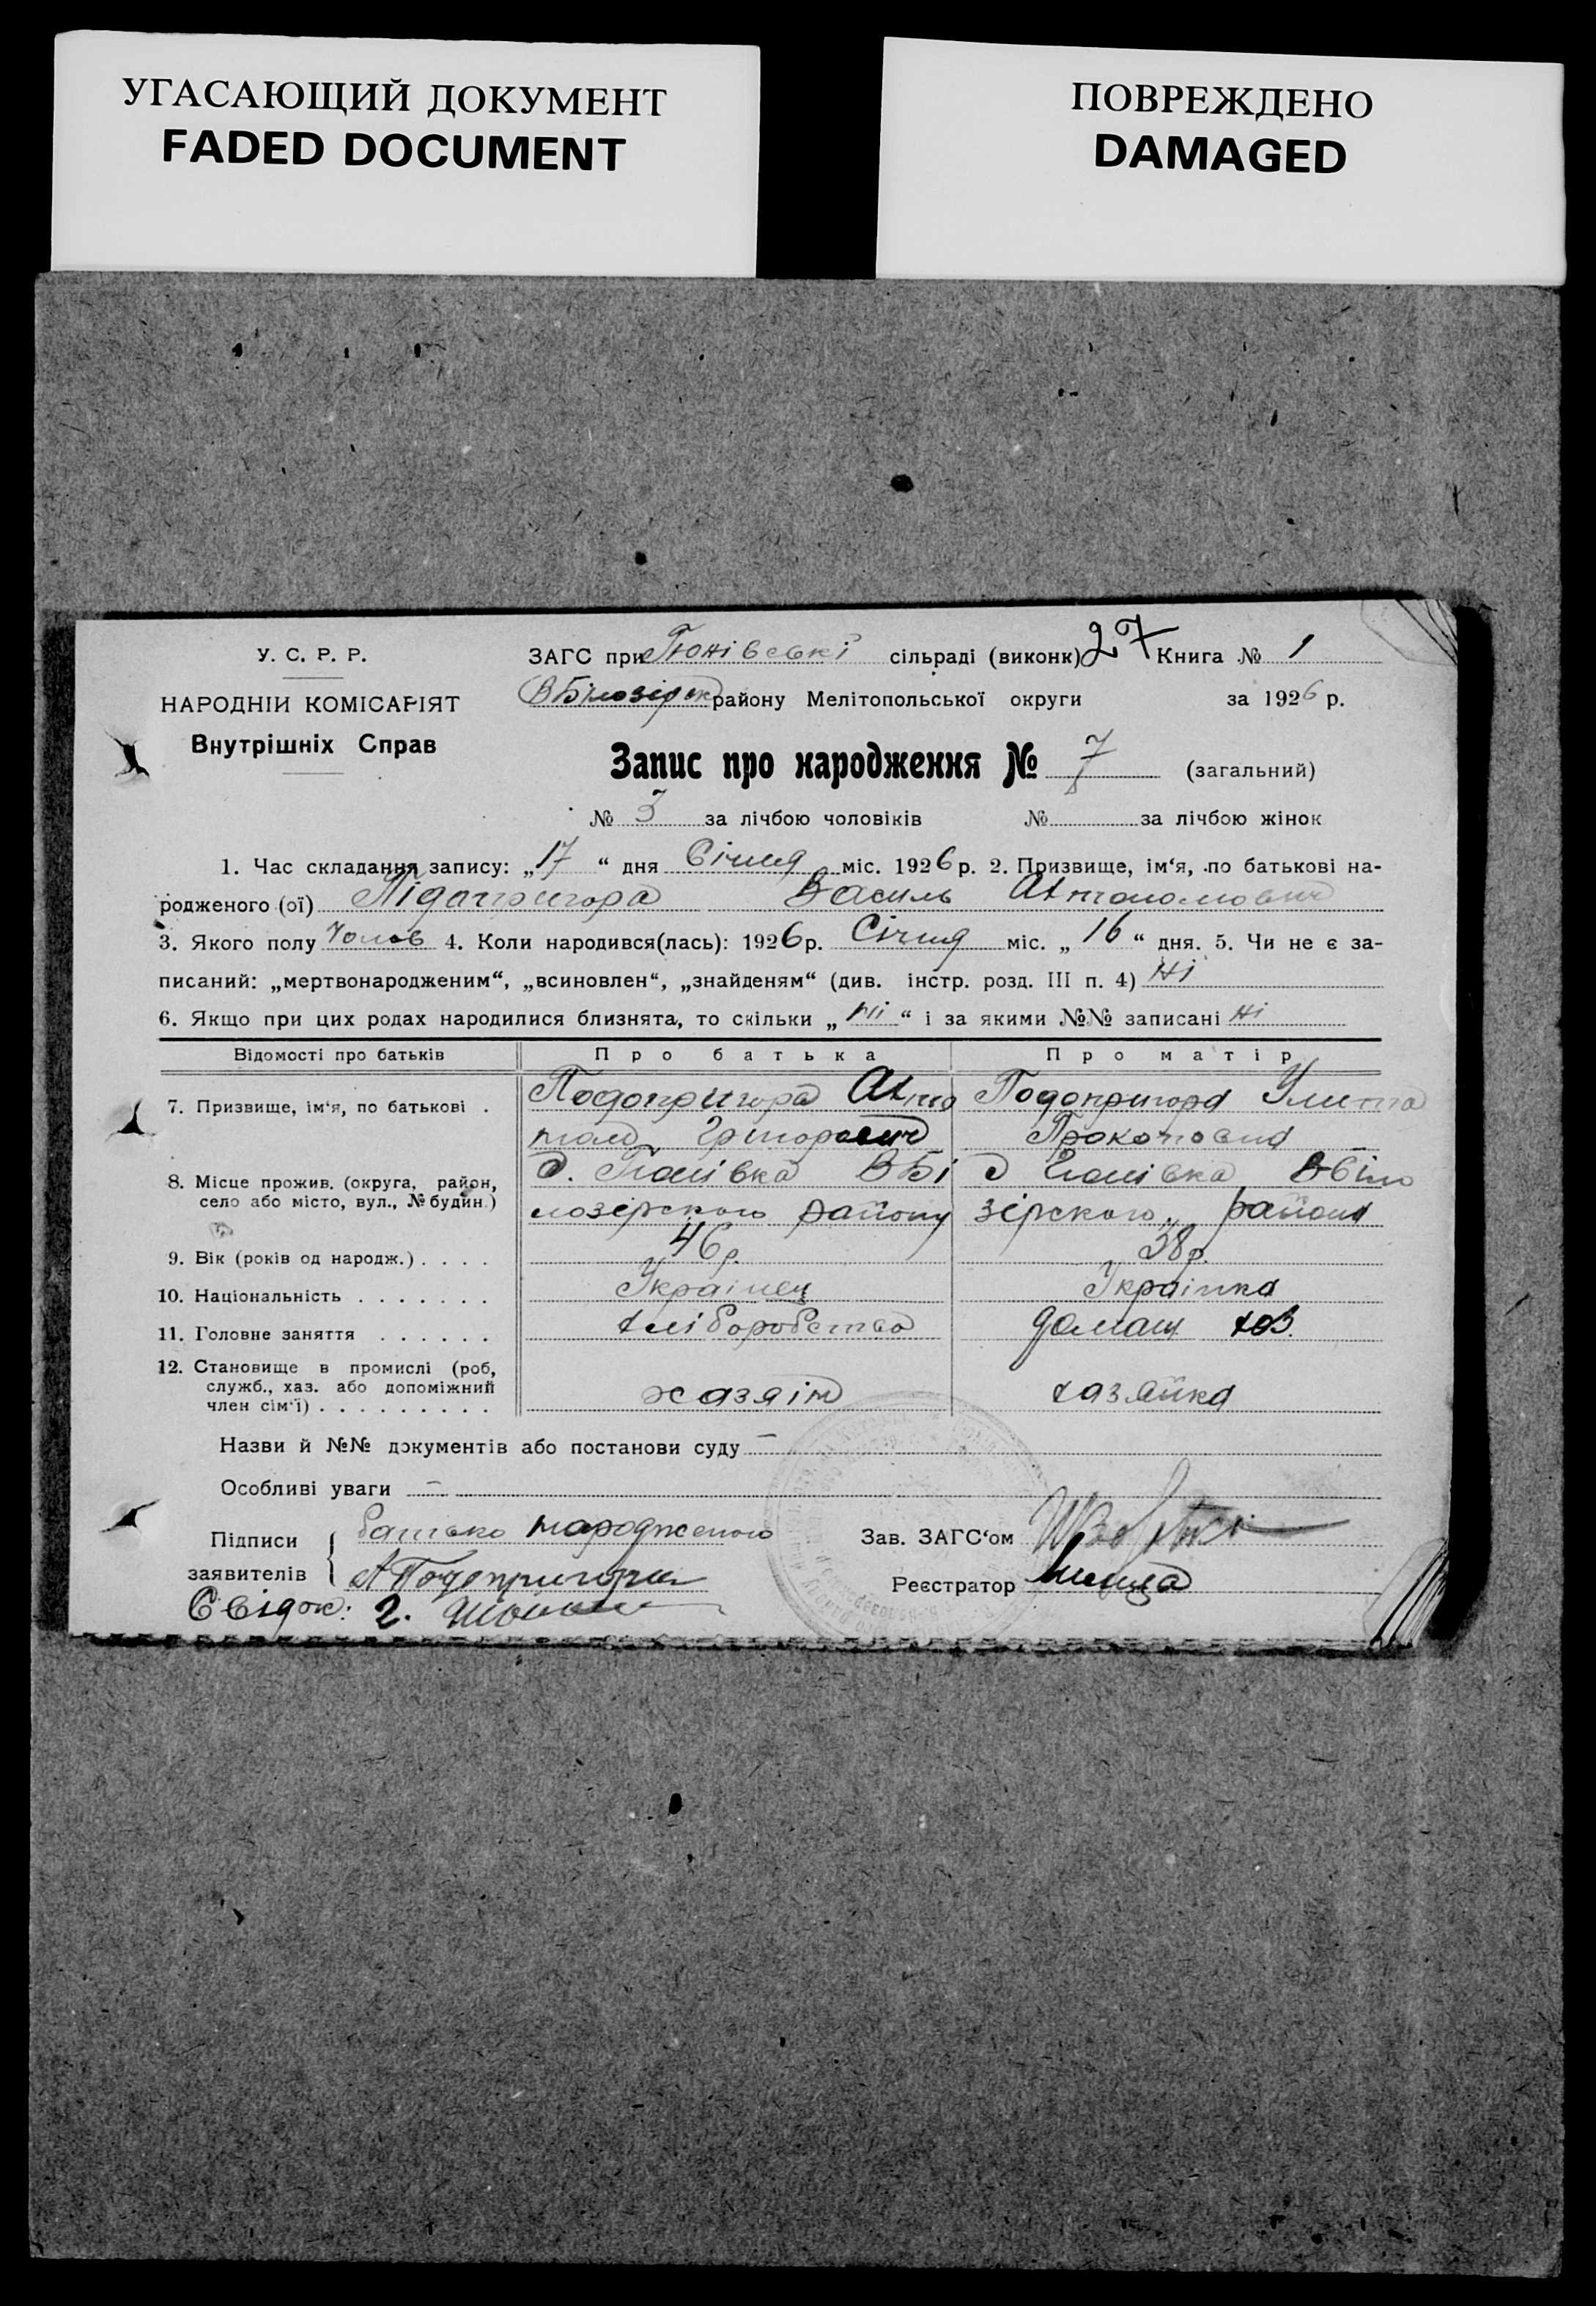 УГАСАЮЩИЙ ДОКУМЕНТ
FADED DOCUMENT
ПОВРЕЖДЕНО
DAMAGED
У. С. Р. Р.
НАРОДНІЙ КОМІСАРІЯТ
Внутрішніх Справ
ЗАГС при Гюнівські сільраді (виконк) 27 Книга № 1
ВБілозірск району Мелітопольської округи за 1926 р.
Запис про народження № 7 (загальний)
№ 3 за лічбою чоловіків № за лічбою жінок
1. Час складання запису: „17“ дня Січня міс. 1926 р. 2. Призвище, ім‘я, по батькові на-
родженого (ої) Підопригора Василь Автономович
3. Якого полу Чолов 4. Коли народився(лась): 1926 р. Січня міс. „16“ дня. 5. Чи не є за-
писаний: „мертвонародженим“, „всиновлен“, „знайденям“ (див. інстр. розд. III п. 4) Ні
6. Якщо при цих родах народилися близнята, то скільки „ні“ і за якими №№ записані Ні
Відомості про батьків Про батька Про матір
7. Призвище, ім‘я, по батькові . Подопригора Авто Подопригора Улита
ном Григорович Прокоповна
8. Місце прожив. (округа, район, село або місто, вул., № будин.) ВБі
лозірского району зірского району
9. Вік (років од народж.) . . . . 46 р. 38 р.
10. Національність . . . . . . . Українец Українка
11. Головне заняття . . . . . . хліборобство домаш хоз.
12. Становище в промислі (роб,
служб., хаз. або допоміжний
член сім‘ї) . . . . . . . . . хазяін хазяйка
Назви й №№ документів або постанови суду —
Особливі уваги —
Підписи заявителів батько народженого
А Подопригора
Свідок: 2.
Зав. ЗАГС‘ом
Реєстратор